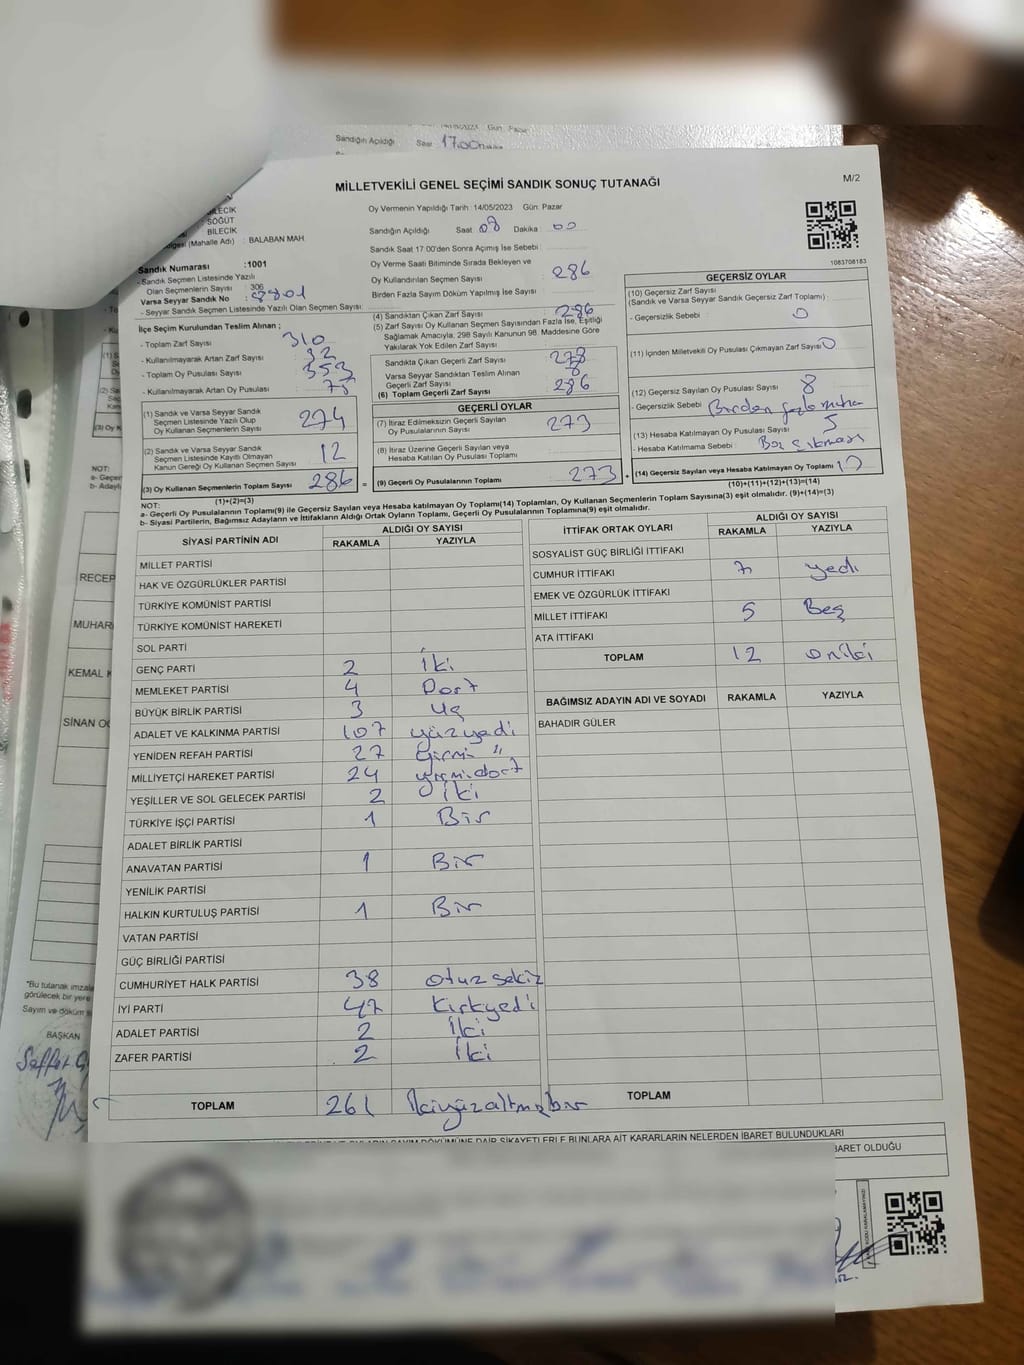 Sandığın Açıldığı Saat 17:00
MİLLETVEKİLİ GENEL SEÇİMİ SANDIK SONUÇ TUTANAĞI
M/2
BİLECİK
SÖĞÜT
BİLECİK
(Mahalle Adı) : BALABAN MAH
Oy Vermenin Yapıldığı Tarih : 14/05/2023 Gün: Pazar
Sandığın Açıldığı Saat 08 Dakika : 00
Sandık Saat 17:00'den Sonra Açılmış İse Sebebi :
Oy Verme Saati Bitiminde Sırada Bekleyen ve
Oy Kullandırılan Seçmen Sayısı : 286
Birden Fazla Sayım Döküm Yapılmış İse Sayısı :
1083708183
Sandık Numarası :1001
- Sandık Seçmen Listesinde Yazılı
Olan Seçmenlerin Sayısı : 306
Varsa Seyyar Sandık No : 8801
- Seyyar Sandık Seçmen Listesinde Yazılı Olan Seçmen Sayısı :
İlçe Seçim Kurulundan Teslim Alınan ;
- Toplam Zarf Sayısı : 310
- Kullanılmayarak Artan Zarf Sayısı : 32
- Toplam Oy Pusulası Sayısı : 353
- Kullanılmayarak Artan Oy Pusulası : 75
(1) Sandık ve Varsa Seyyar Sandık
Seçmen Listesinde Yazılı Olup
Oy Kullanan Seçmenlerin Sayısı 274
(2) Sandık ve Varsa Seyyar Sandık
Seçmen Listesinde Kayıtlı Olmayan
Kanun Gereği Oy Kullanan Seçmen Sayısı 12
(3) Oy Kullanan Seçmenlerin Toplam Sayısı 286
(1)+(2)=(3)
(4) Sandıktan Çıkan Zarf Sayısı : 286
(5) Zarf Sayısı Oy Kullanan Seçmen Sayısından Fazla İse, Eşitliği
Sağlamak Amacıyla, 298 Sayılı Kanunun 98. Maddesine Göre
Yakılarak Yok Edilen Zarf Sayısı :
Sandıkta Çıkan Geçerli Zarf Sayısı : 278
Varsa Seyyar Sandıktan Teslim Alınan
Geçerli Zarf Sayısı : 8
(6) Toplam Geçerli Zarf Sayısı : 286
GEÇERLİ OYLAR
(7) İtiraz Edilmeksizin Geçerli Sayılan
Oy Pusulalarının Sayısı : 273
(8) İtiraz Üzerine Geçerli Sayılan veya
Hesaba Katılan Oy Pusulası Toplamı :
(9) Geçerli Oy Pusulalarının Toplamı : 273
GEÇERSİZ OYLAR
(10) Geçersiz Zarf Sayısı
(Sandık ve Varsa Seyyar Sandık Geçersiz Zarf Toplamı) :
- Geçersizlik Sebebi : 0
(11) İçinden Milletvekili Oy Pusulası Çıkmayan Zarf Sayısı 0
(12) Geçersiz Sayılan Oy Pusulası Sayısı : 8
- Geçersizlik Sebebi : Birden fazla mühür
(13) Hesaba Katılmayan Oy Pusulası Sayısı : 5
- Hesaba Katılmama Sebebi : Boş çıkması
(14) Geçersiz Sayılan veya Hesaba Katılmayan Oy Toplamı 13
(10)+(11)+(12)+(13)=(14)
NOT:
a- Geçerli Oy Pusulalarının Toplamı(9) ile Geçersiz Sayılan veya Hesaba katılmayan Oy Toplamı(14) Toplamları, Oy Kullanan Seçmenlerin Toplam Sayısına(3) eşit olmalıdır. (9)+(14)=(3)
b- Siyasi Partilerin, Bağımsız Adayların ve İttifakların Aldığı Ortak Oyların Toplamı, Geçerli Oy Pusulalarının Toplamına(9) eşit olmalıdır.
SİYASİ PARTİNİN ADI ALDIĞI OY SAYISI
RAKAMLA YAZIYLA
MİLLET PARTİSİ
HAK VE ÖZGÜRLÜKLER PARTİSİ
TÜRKİYE KOMÜNİST PARTİSİ
TÜRKİYE KOMÜNİST HAREKETİ
SOL PARTİ
GENÇ PARTİ 2 İki
MEMLEKET PARTİSİ 4 Dört
BÜYÜK BİRLİK PARTİSİ 3 Üç
ADALET VE KALKINMA PARTİSİ 107 yüzyedi
YENİDEN REFAH PARTİSİ 27 yirmi "
MİLLİYETÇİ HAREKET PARTİSİ 24 yirmidört
YEŞİLLER VE SOL GELECEK PARTİSİ 2 İki
TÜRKİYE İŞÇİ PARTİSİ 1 Bir
ADALET BİRLİK PARTİSİ
ANAVATAN PARTİSİ 1 Bir
YENİLİK PARTİSİ
HALKIN KURTULUŞ PARTİSİ 1 Bir
VATAN PARTİSİ
GÜÇ BİRLİĞİ PARTİSİ
CUMHURİYET HALK PARTİSİ 38 otuz sekiz
İYİ PARTİ 47 Kırkyedi
ADALET PARTİSİ 2 İki
ZAFER PARTİSİ 2 İki
TOPLAM 261 İkiyüzaltmışbir
İTTİFAK ORTAK OYLARI ALDIĞI OY SAYISI
RAKAMLA YAZIYLA
SOSYALİST GÜÇ BİRLİĞİ İTTİFAKI
CUMHUR İTTİFAKI 7 yedi
EMEK VE ÖZGÜRLÜK İTTİFAKI
MİLLET İTTİFAKI 5 Beş
ATA İTTİFAKI
TOPLAM 12 oniki
BAĞIMSIZ ADAYIN ADI VE SOYADI RAKAMLA YAZIYLA
BAHADIR GÜLER
TOPLAM
SAYIM DÖKÜMÜNE DAİR ŞİKAYETLERLE BUNLARA AİT KARARLARIN NELERDEN İBARET BULUNDUKLARI
BARET OLDUĞU
NOT:
a- Geçer
b- Adayl
RECEP
MUHAR
KEMAL K
SİNAN O
"Bu tutanak imzala
görülecek bir yere
Sayım ve döküm
BAŞKAN